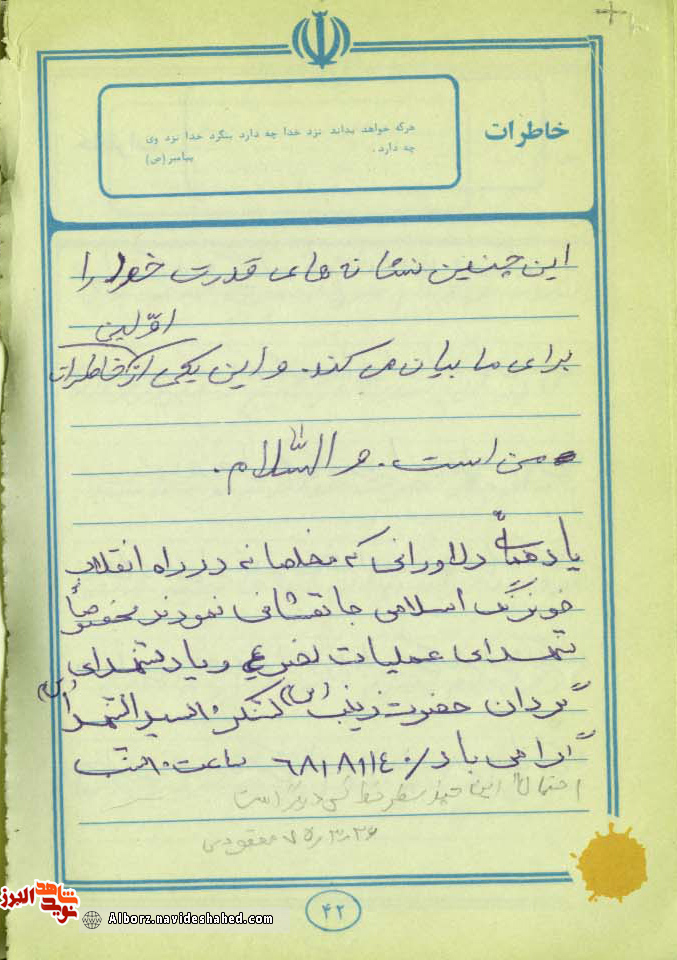 خاطرات
هرکه خواهد بداند نزد خدا چه دارد بنگرد خدا نزد وی
چه دارد.
پیامبر(ص)
این چنین نشانه های قدرت خود را
اوّلین
برای ما بیان می کند. و این یکی از خاطرات
من است. والسّلام.
یاد همهٔ دلاورانی که مخلصانه در راه انقلاب
خونرنگ اسلامی جانفشانی نمودند مخصوصاً
شهدای عملیات نصر ۴ و یاد شهدای
گردان حضرت زینب (س) لشکر ۱۰ سیدالشهدا (س)
گرامی باد / ساعت ۱۰ شب
احتمالاً این چند سطر خط کس دیگر است
۴۲
نوید شاهد البرز
Alborz.navideshahed.com